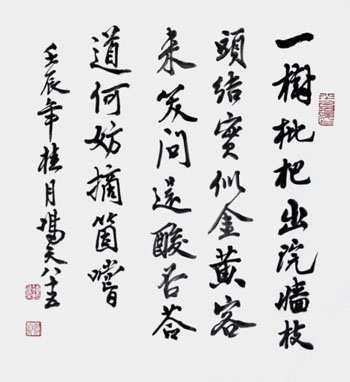 一樹枇杷出院牆枝
頭結實似金黄客
来笑問還酸否答
道何妨摘箇嚐
壬辰年桂月楊天八十五